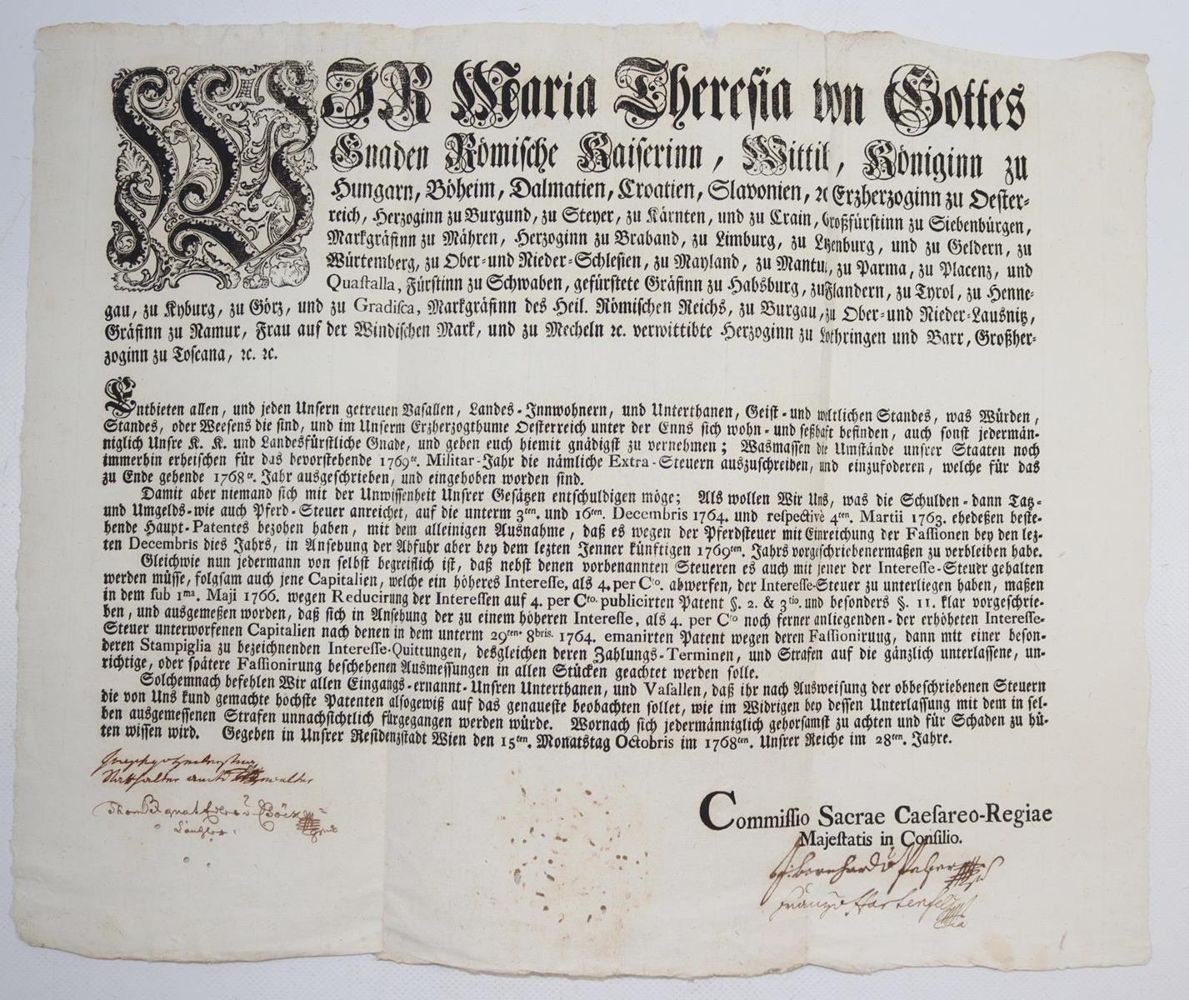 WIR Maria Theresia von Gottes
Gnaden Römische Kaiserinn, Wittib, Königinn zu
Hungarn, Böheim, Dalmatien, Croatien, Slavonien, ꝛc Erzherzoginn zu Oester-
reich, Herzoginn zu Burgund, zu Steyer, zu Kärnten, und zu Crain, Großfürstinn zu Siebenbürgen,
Markgräfinn zu Mähren, Herzoginn zu Braband, zu Limburg, zu Lützenburg, und zu Geldern, zu
Würtemberg, zu Ober-und Nieder-Schlesien, zu Mayland, zu Mantua, zu Parma, zu Placenz, und
Quastalla, Fürstinn zu Schwaben, gefürstete Gräfinn zu Habsburg, zu Flandern, zu Tyrol, zu Henne-
gau, zu Kyburg, zu Görz, und zu Gradisca, Markgräfinn des Heil. Römischen Reichs, zu Burgau, zu Ober-und Nieder-Lausnitz,
Gräfinn zu Namur, Frau auf der Windischen Mark, und zu Mecheln ꝛc. verwittibte Herzoginn zu Lothringen und Barr, Großher-
zoginn zu Toscana, ꝛc. ꝛc.
Entbieten allen, und jeden Unsern getreuen Vasallen, Landes-Innwohnern, und Unterthanen, Geist-und weltlichen Standes, was Würden,
Standes, oder Weesens die sind, und im Unserm Erzherzogthume Oesterreich unter der Enns sich wohn-und seßhaft befinden, auch sonst jedermän-
niglich Unsre K. K. und Landesfürstliche Gnade, und geben euch hiemit gnädigst zu vernehmen; Wasmassen die Umstände unsrer Staaten noch
immerhin erheischen für das bevorstehende 1769te. Militar-Jahr die nämliche Extra-Steuern auszuschreiben, und einzufoderen, welche für das
zu Ende gehende 1768te. Jahr ausgeschrieben, und eingehoben worden sind.
Damit aber niemand sich mit der Unwissenheit Unsrer Gesätzen entschuldigen möge; Als wollen Wir Uns, was die Schulden-dann Tatz-
und Umgelds-wie auch Pferd-Steuer anreichet, auf die unterm 3ten. und 16ten. Decembris 1764. und respectivè 4ten. Martii 1763. ehedeßen beste-
hende Haupt-Patentes bezohen haben, mit dem alleinigen Ausnahme, daß es wegen der Pferdsteuer mit Einreichung der Fassionen bey den lez-
ten Decembris dies Jahrs, in Ansehung der Abfuhr aber bey dem lezten Jenner künftigen 1769ten. Jahrs vorgeschriebenermaßen zu verbleiben habe.
Gleichwie nun jedermann von selbst begreiflich ist, daß nebst denen vorbenannten Steueren es auch mit jener der Interesse-Steuer gehalten
werden müsse, folgsam auch jene Capitalien, welche ein höheres Interesse, als 4. per Cto. abwerfen, der Interesse-Steuer zu unterliegen haben, maßen
in dem sub 1ma. Maji 1766. wegen Reducirung der Interessen auf 4. per Cto. publicirten Patent §. 2. & 3tio. und besonders §. 11. klar vorgeschrie-
ben, und ausgemeßen worden, daß sich in Ansehung der zu einem höheren Interesse, als 4. per Cto noch ferner anliegenden-der erhöheten Interesse-
Steuer unterworfenen Capitalien nach denen in dem unterm 29ten. 8bris. 1764. emanirten Patent wegen deren Fassionirung, dann mit einer beson-
deren Stampiglia zu bezeichnenden Interesse-Quittungen, desgleichen deren Zahlungs-Terminen, und Strafen auf die gänzlich unterlassene, un-
richtige, oder spätere Fassionirung beschehenen Ausmessungen in allen Stücken geachtet werden solle.
Solchemnach befehlen Wir allen Eingangs-ernannt-Unsren Unterthanen, und Vasallen, daß ihr nach Ausweisung der obbeschriebenen Steuern
die von Uns kund gemachte höchste Patenten alsogewiß auf das genaueste beobachten sollet, wie im Widrigen bey dessen Unterlassung mit dem in sel-
ben ausgemessenen Strafen unnachsichtlich fürgegangen werden würde. Wornach sich jedermänniglich gehorsamst zu achten und für Schaden zu hü-
ten wissen wird. Gegeben in Unsrer Residenzstadt Wien den 15ten. Monatstag Octobris im 1768ten. Unsrer Reiche im 28ten. Jahre.
Commissio Sacrae Caesareo-Regiae
Majestatis in Consilio.